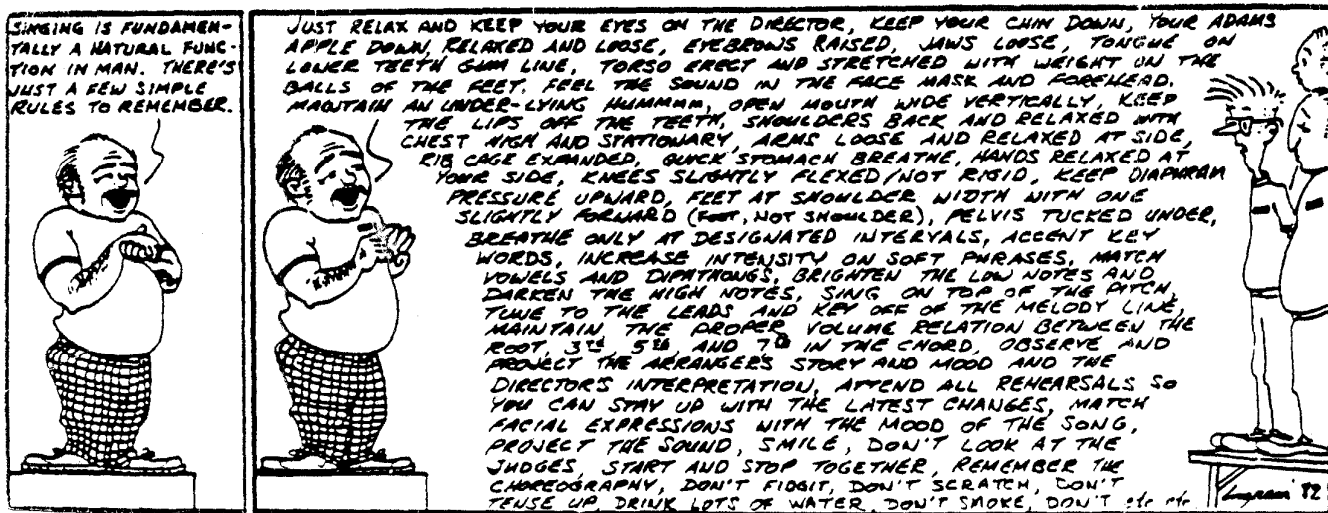 SINGING IS FUNDAMEN-
TALLY A NATURAL FUNC-
TION IN MAN. THERE'S
JUST A FEW SIMPLE
RULES TO REMEMBER.
JUST RELAX AND KEEP YOUR EYES ON THE DIRECTOR, KEEP YOUR CHIN DOWN, YOUR ADAMS
APPLE DOWN, RELAXED AND LOOSE, EYEBROWS RAISED, JAWS LOOSE, TONGUE ON
LOWER TEETH GUM LINE, TORSO ERECT AND STRETCHED WITH WEIGHT ON THE
BALLS OF THE FEET. FEEL THE SOUND IN THE FACE MASK AND FOREHEAD.
MAINTAIN AN UNDER-LYING HUMMMM, OPEN MOUTH WIDE VERTICALLY, KEEP
THE LIPS OFF THE TEETH, SHOULDERS BACK AND RELAXED WITH
CHEST HIGH AND STATIONARY, ARMS LOOSE AND RELAXED AT SIDE,
RIB CAGE EXPANDED, QUICK STOMACH BREATHE, HANDS RELAXED AT
YOUR SIDE, KNEES SLIGHTLY FLEXED/NOT RIGID, KEEP DIAPHRAM
PRESSURE UPWARD, FEET AT SHOULDER WIDTH WITH ONE
SLIGHTLY FORWARD (FOOT, NOT SHOULDER), PELVIS TUCKED UNDER,
BREATHE ONLY AT DESIGNATED INTERVALS, ACCENT KEY
WORDS, INCREASE INTENSITY ON SOFT PHRASES, MATCH
VOWELS AND DIPHTHONGS, BRIGHTEN THE LOW NOTES AND
DARKEN THE HIGH NOTES, SING ON TOP OF THE PITCH,
TUNE TO THE LEADS AND KEY OFF OF THE MELODY LINE,
MAINTAIN THE PROPER VOLUME RELATION BETWEEN THE
ROOT, 3rd 5th, AND 7th IN THE CHORD, OBSERVE AND
PROJECT THE ARRANGER'S STORY AND MOOD AND THE
DIRECTOR'S INTERPRETATION, ATTEND ALL REHEARSALS SO
YOU CAN STAY UP WITH THE LATEST CHANGES, MATCH
FACIAL EXPRESSIONS WITH THE MOOD OF THE SONG,
PROJECT THE SOUND, SMILE, DON'T LOOK AT THE
JUDGES, START AND STOP TOGETHER, REMEMBER THE
CHOREOGRAPHY, DON'T FIDGIT, DON'T SCRATCH, DON'T
TENSE UP, DRINK LOTS OF WATER, DON'T SMOKE, DON'T etc etc
'82